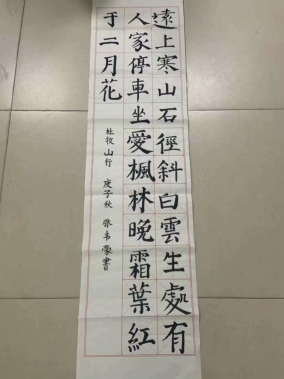 遠上寒山石徑斜白雲生處有
人家停車坐愛楓林晚霜葉紅
于二月花
杜牧山行 庚子秋 張韦豪書